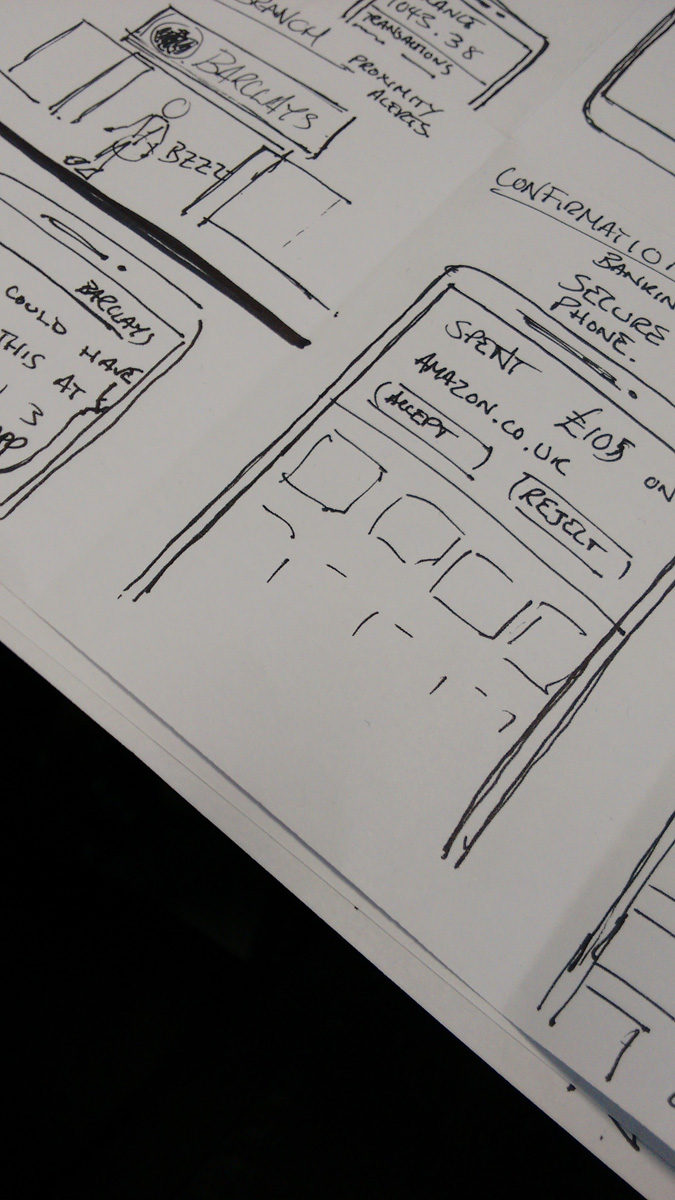 BRANCH
BARCLAYS
BZZZ
1043.38
TRANSACTIONS
PROXIMITY
ALERTS
BARCLAYS
COULD HAVE
THIS AT
3
CONFIRMATION
BANKIN
SECURE
PHONE.
SPENT £105 ON
AMAZON.CO.UK
ACCEPT REJECT